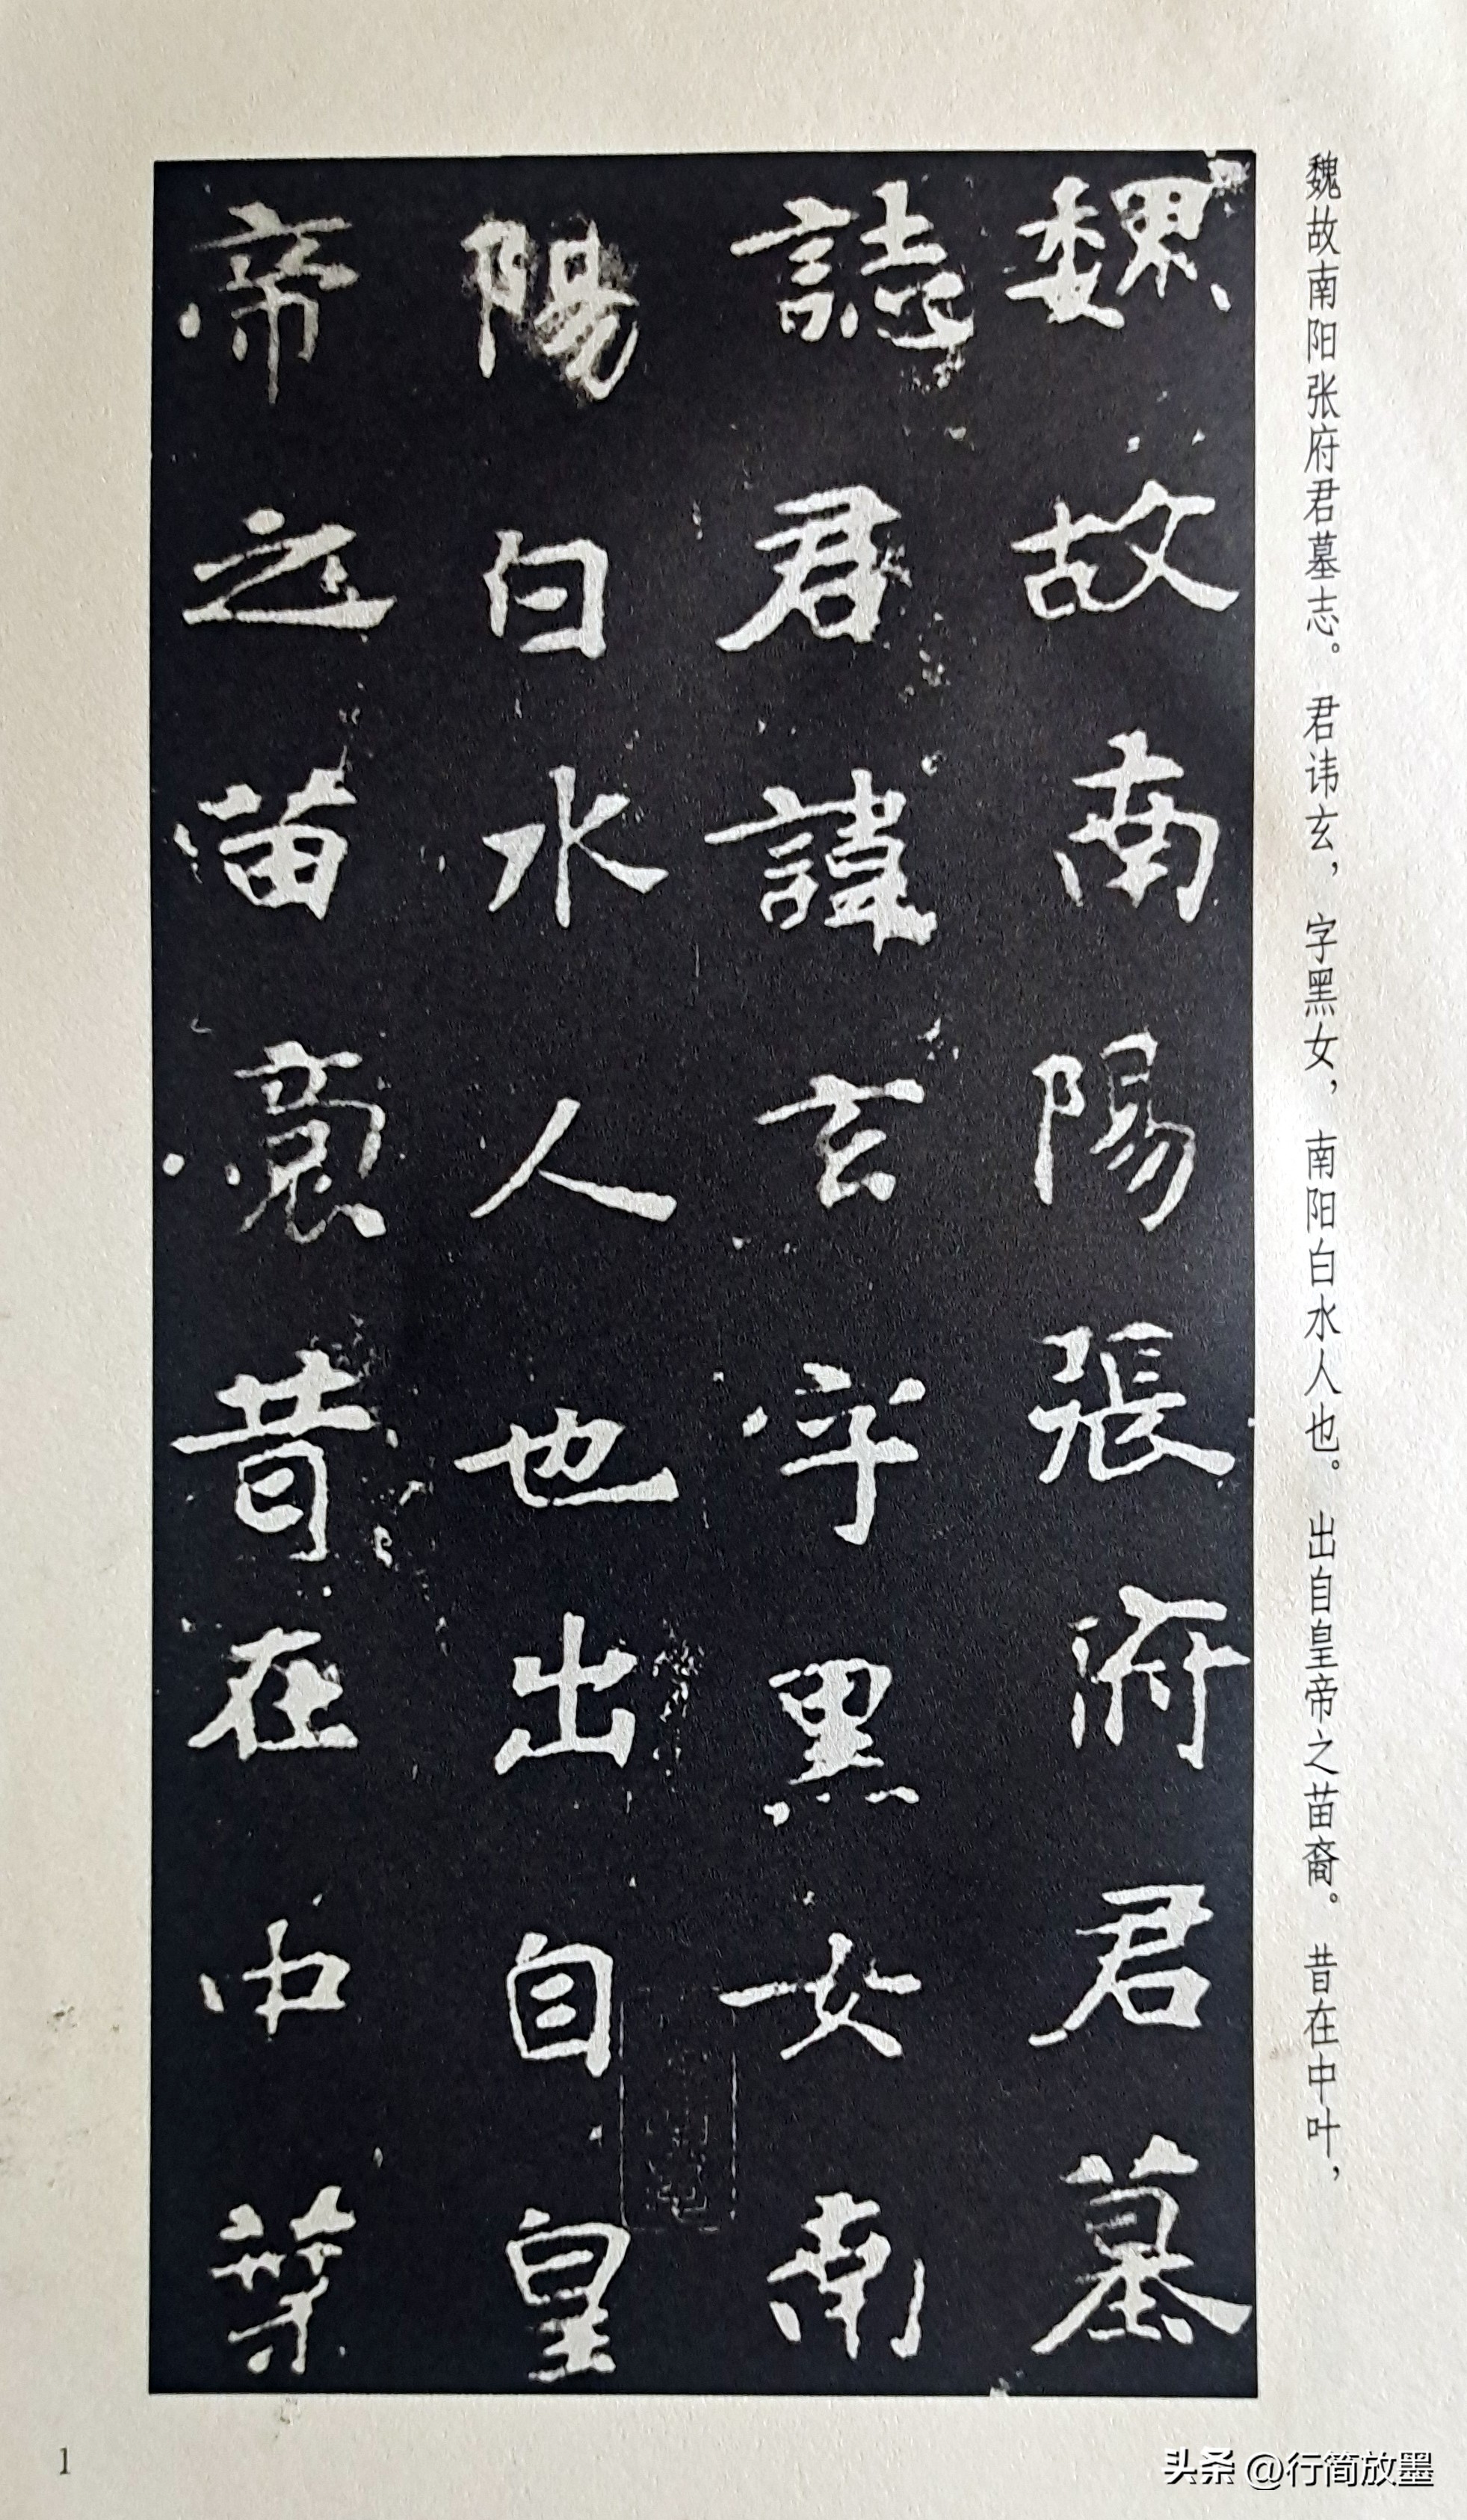 魏故南阳张府君墓志。君讳玄，字黑女，南阳白水人也。出自皇帝之苗裔。昔在中叶，
魏故南陽張府君墓
誌君諱玄字黑女南
陽白水人也出自皇
帝之苗裔昔在中葉
1
头条 @行简放墨